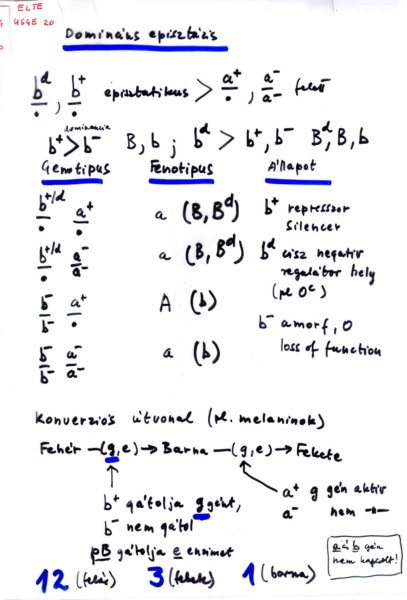 ELTE
USGE 20
Domináns episztázis
b^d/•, b^+/• episztatikus > a^+/•, a^-/a^- felett
dominancia
b^+ > b^- B, b ; b^d > b^+, b^- B^d, B, b
Genotípus Fenotípus Állapot
b^+/d/• a^+/• a (B, B^d) b^+ represszor
Silencer
b^+/d/• a^-/a^- a (B, B^d) b^d cisz negatív
regulátor hely
(pl O^c)
b^-/b^- a^+/• A (b)
b^- amorf, 0
loss of function
b^-/b^- a^-/a^- a (b)
Konverziós útvonal (pl. melaninok)
Fehér —(g,e)→ Barna —(g,e)→ Fekete
b^+ gátolja g gént, a^+ g gén aktív
b^- nem gátol a^- nem -"-
pB gátolja e enzimet
a és b gén
nem kapcsolt!
12 (fehér) 3 (fekete) 1 (barna)